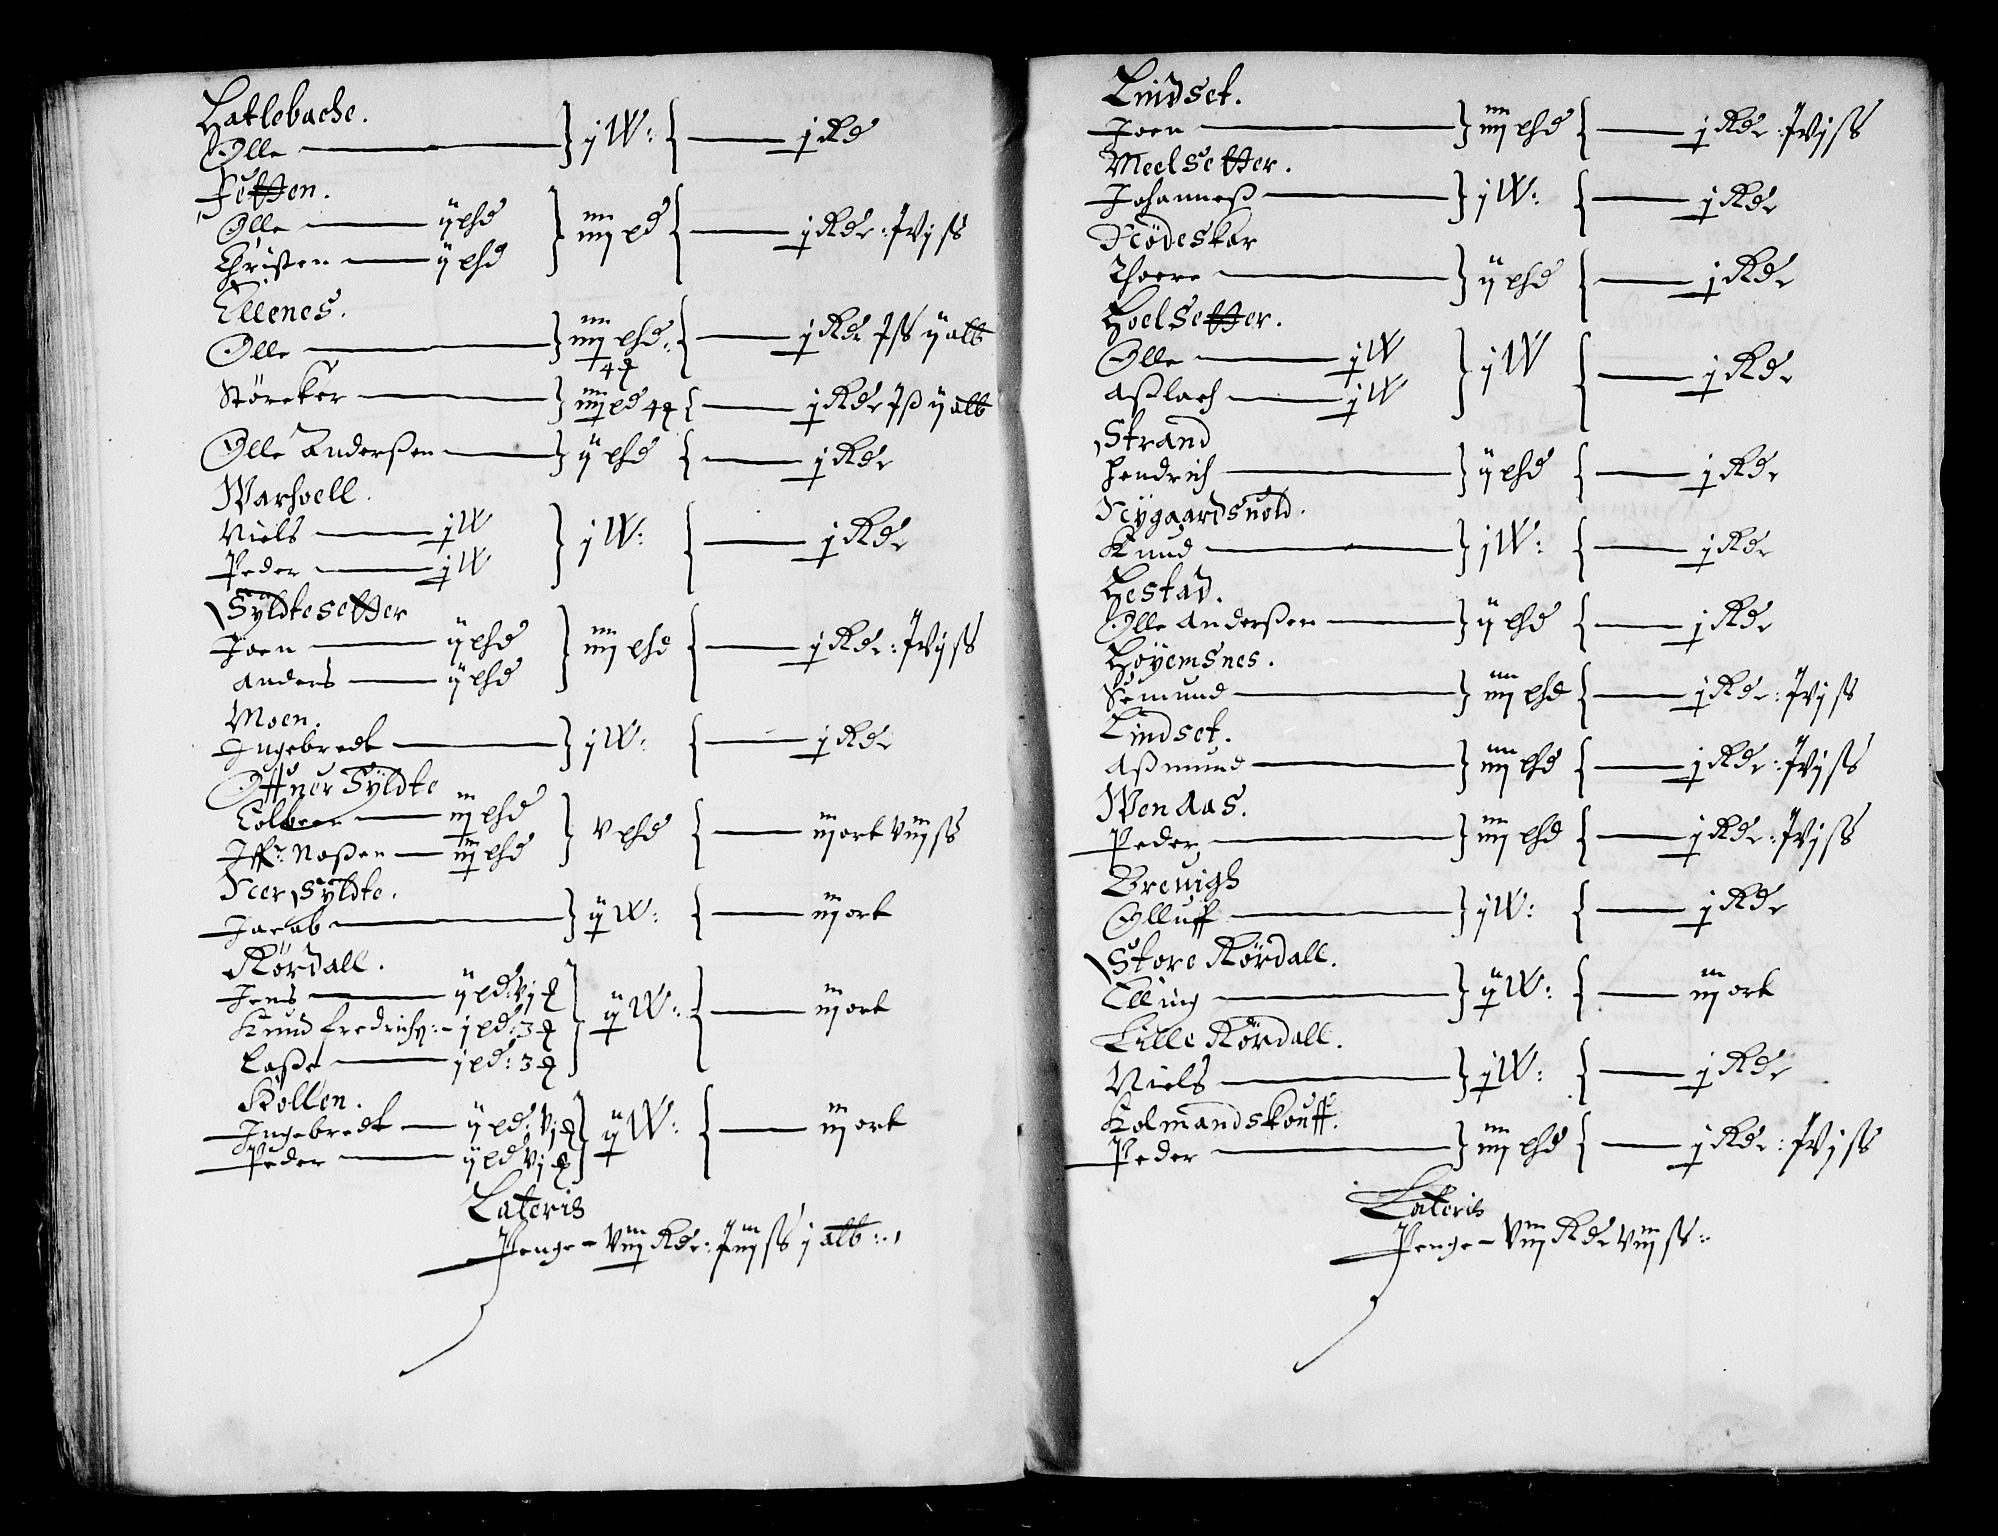 Hatlebache.
Olle — } j W: { — j Rd
Jetten.
Olle — ij phd
Christen — ij phd } iiij pd { — j Rdr: Jvj ss
Ellenes.
Olle — } iiij phd: 4 { — j Rdr J ss ij alb
Störcker — } iiij pd 4 { — j Rdr J ss ij alb
Olle Anderssen — } ij phd { — j Rdr
Warhoell.
Niels — j W
Peder — j W } j W: { — j Rdr
Syldtesetter
Joen — ij phd
Anders — ij phd } iiij phd { — j Rdr: Jvj ss
Moen.
Ingebredt — } j W: { — j Rdr
Offuer Syldte
— iij phd
Noßen — iij phd } v phd { — iij ort viij ss
Neer Syldte.
Jacob — } ij W: { — iij ort
Rördall.
Jens — ij pd: vj
Knud fredrichs: – j pd: 3
Laße — j pd: 3 } ij W: { — iij ort
Kollen.
Ingebredt — ij pd: vj
Peder — ij pd vj } ij W: { — iij ort
Lateris
Penge – viij Rdr: Jiiij ss j alb:
Lindset.
Joen — } iiij phd { — j Rdr: Jvj ss
Meelsetter.
Johanneß — } j W: { — j Rdr
Nödeskar
Thoere — } ij phd { — j Rdr
Hoelsetter.
Olle — j W
Aßlach — j W } j W { — j Rdr
Strand
Hendrich — } ij phd { — j Rdr
Nygaardsuold.
Knud — } j W: { — j Rdr
Hestad.
Olle Anderßen — } ij phd { — j Rdr
Höyemsnes.
Semund — } iiij phd { — j Rdr: Jvj ss
Lindset.
Aßmund — } iiij phd { — j Rdr: Jvj ss
Wenaas.
Peder — } iiij phd { — j Rdr: Jvj ss
Breuigh
Olluff — } j W: { — j Rdr
Store Rördall.
Elling — } ij W: { — iij ort
Lille Rördall.
Niels — } j W: { — j Rdr
Kolmandskouff.
Peder — } iiij phd { — j Rdr: Jvj ss
Lateris
Penge – viij Rdr viij ss: